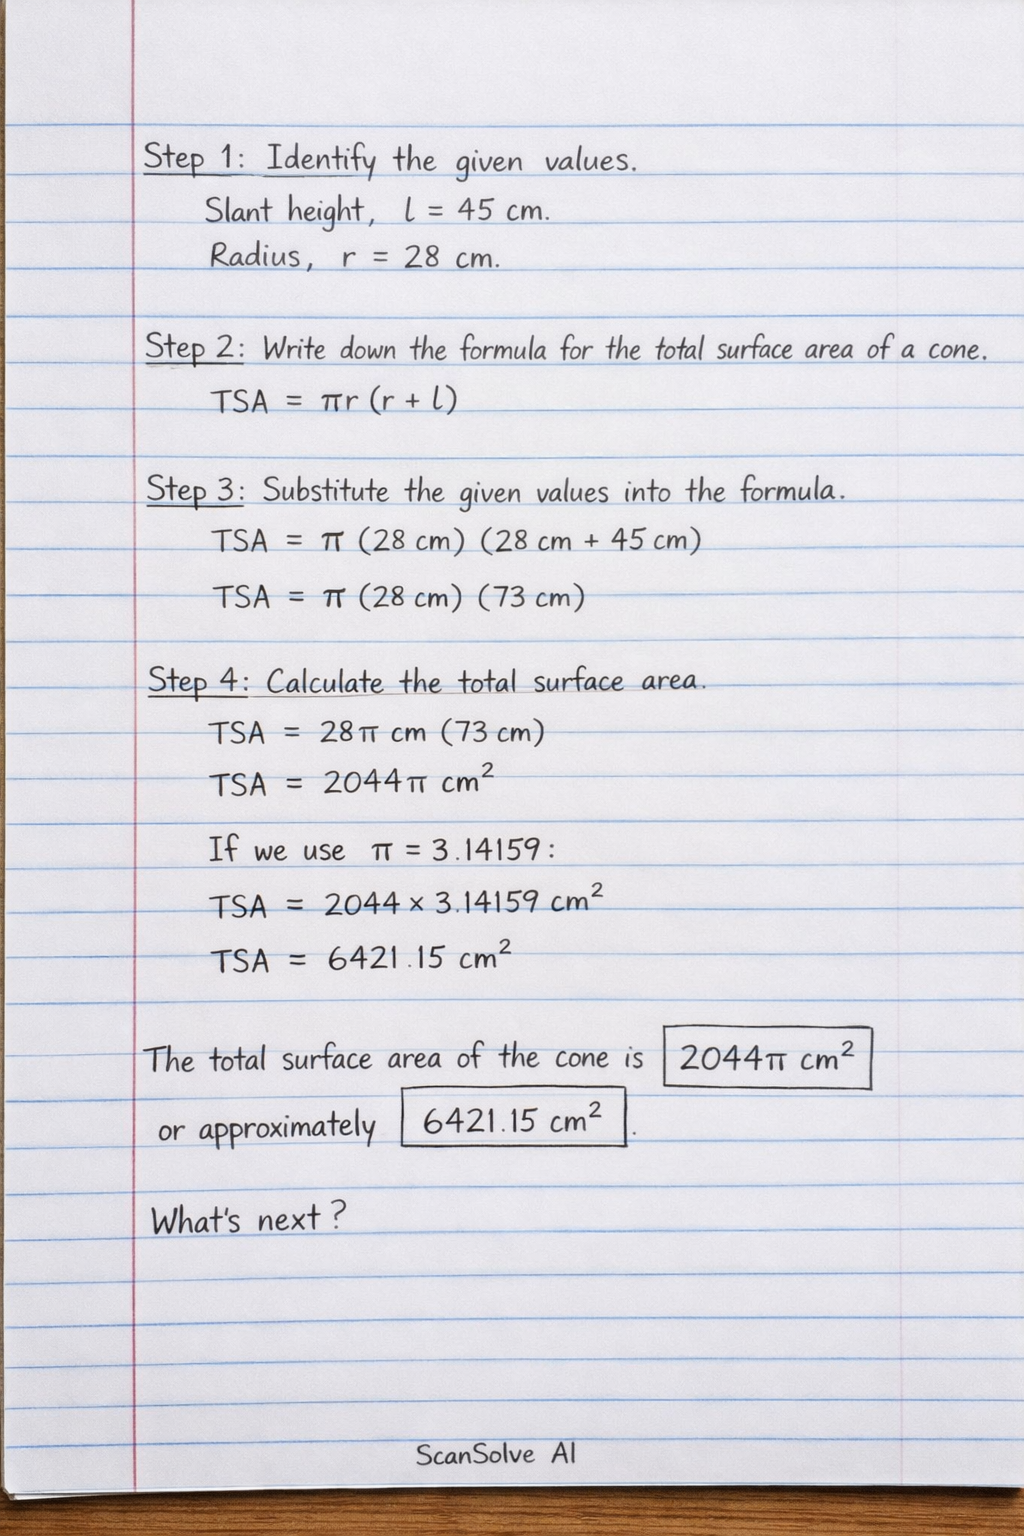 Step 1: Identify the given values.
Slant height, l = 45 cm.
Radius, r = 28 cm.
Step 2: Write down the formula for the total surface area of a cone.
TSA = πr (r + l)
Step 3: Substitute the given values into the formula.
TSA = π (28 cm) (28 cm + 45 cm)
TSA = π (28 cm) (73 cm)
Step 4: Calculate the total surface area.
TSA = 28π cm (73 cm)
TSA = 2044π cm²
If we use π = 3.14159:
TSA = 2044 × 3.14159 cm²
TSA = 6421.15 cm²
The total surface area of the cone is 2044π cm²
or approximately 6421.15 cm².
What's next?
ScanSolve AI